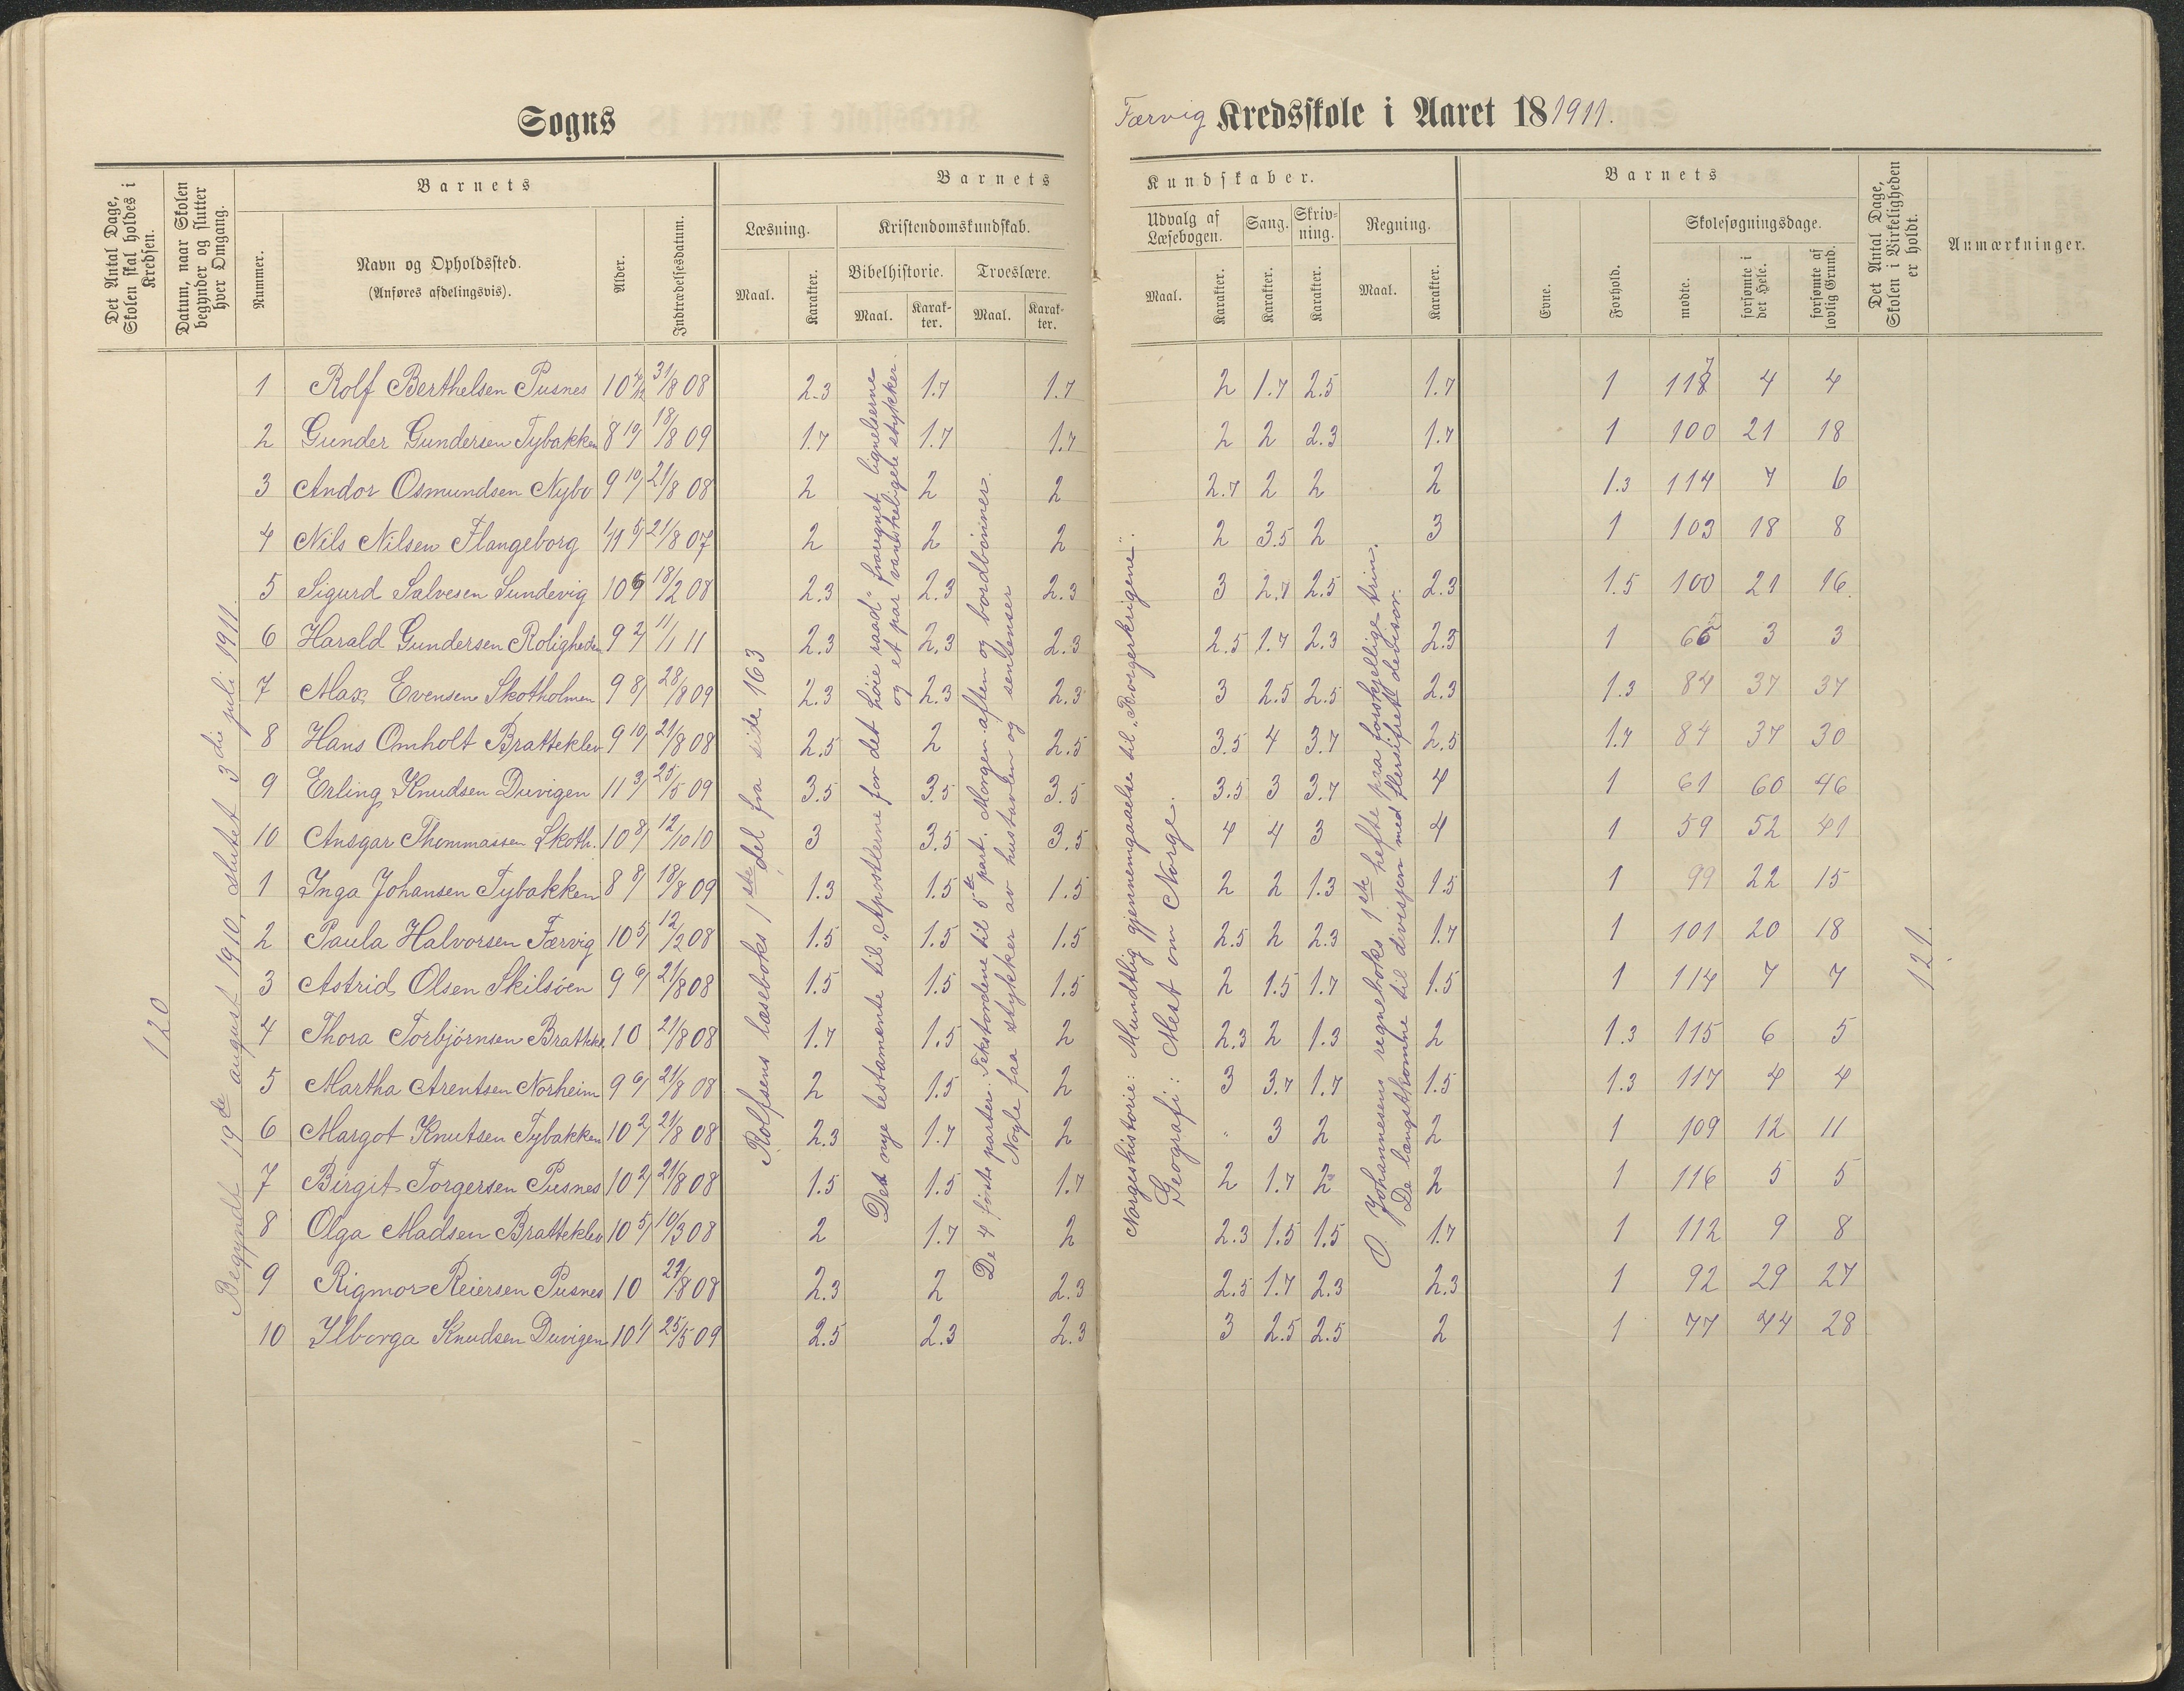 Sogns
Færvig Kredsskole i Aaret 18 1911.
Det Antal Dage, Skolen skal holdes i Kredsen.
Datum, naar Skolen begynder og slutter hver Omgang.
Barnets
Nummer.
Navn og Opholdssted.
(Anføres afdelingsvis).
Alder.
Indtrædelsesdatum.
Barnets
Læsning.
Maal.
Karakter.
Kristendomskundskab.
Bibelhistorie.
Maal.
Karak-
ter.
Troeslære.
Maal.
Karak-
ter.
Kundskaber.
Udvalg af
Læsebogen.
Maal.
Karakter.
Sang.
Karakter.
Skriv-
ning.
Karakter.
Regning.
Maal.
Karakter.
Barnets
Evne.
Forhold.
Skolesøgningsdage.
mødte.
forsømte i det Hele.
forsømte af lovlig Grund.
Det Antal Dage, Skolen i Virkeligheden er holdt.
Anmærkninger.
120
Begyndt 19de august 1910, sluttet 3die juli 1911.
Rolfsens læseboks 1ste del fra side 163
Det nye testamente til "Apostlerne for det høie raad" fraregnet lignelserne
og et par vanskeligste stykker.
De 4 første parter. Tekstordene til 5te part. Morgen- aften og bordbønner.
Nogle faa stykker av hustavlen og sentenser
Norgeshistorie: Mundtlig gjennemgaaelse til "Borgerkrigene".
Geografi: Mest om Norge.
O. Johannesens regneboks 1ste hefte paa forskjellige trin.
De længstkomne til divisjon med flersifret divisor.
121
1 Rolf Berthelsen Pusnes 10 31/8 08 2.3 1.7 1.7 2 1.7 2.5 1.7 1 117 4 4
2 Gunder Gundersen Tybakken 8 10/ 18/8 09 1.7 1.7 1.7 2 2 2.3 1.7 1 100 21 18
3 Andor Osmundsen Nybo 9 10/ 21/8 08 2 2 2 2.7 2 2 2 1.3 114 7 6
4 Nils Nilsen Flangeborg 11 5/ 21/8 07 2 2 2 2 3.5 2 3 1 103 18 8
5 Sigurd Salvesen Sundevig 10 18/2 08 2.3 2.3 2.3 3 2.7 2.5 2.3 1.5 100 21 16
6 Harald Gundersen Roligheden 9 2/ 11/1 11 2.3 2.3 2.3 2.5 1.7 2.3 2.3 1 65 3 3
7 Max Evensen Skotholmen 9 8/ 28/8 09 2.3 2.3 2.3 3 2.5 2.5 2.3 1.3 84 37 37
8 Hans Omholt Bratteklev 9 10/ 21/8 08 2.5 2 2.5 3.5 4 3.7 2.5 1.7 84 37 30
9 Erling Knudsen Duvigen 11 3/ 25/5 09 3.5 3.5 3.5 3.5 3 3.7 4 1 61 60 46
10 Ansgar Thommassen Skoth. 10 8/ 12/10 10 3 3.5 3.5 4 4 3 4 1 59 52 41
1 Inga Johansen Tybakken 8 8/ 18/8 09 1.3 1.5 1.5 2 2 1.3 1.5 1 99 22 15
2 Paula Halvorsen Færvig 10 5/ 12/2 08 1.5 1.5 1.5 2.5 2 2.3 1.7 1 101 20 18
3 Astrid Olsen Skilsøen 9 6/ 21/8 08 1.5 1.5 1.5 2 1.5 1.7 1.5 1 114 7 7
4 Thora Torbjørnsen Brattekl. 10 21/8 08 1.7 1.5 2 2.3 2 1.3 2 1.3 115 6 5
5 Martha Arentsen Norheim 9 6/ 21/8 08 2 1.5 2 3 3.7 1.7 1.5 1.3 117 4 4
6 Margot Knutsen Tybakken 10 2/ 21/8 08 2.3 1.7 2 " 3 2 2 1 109 12 11
7 Birgit Torgersen Pusnes 10 2/ 21/8 08 1.5 1.5 1.7 2 1.7 2 2 1 116 5 5
8 Olga Madsen Bratteklev 10 5/ 10/3 08 2 1.7 2 2.3 1.5 1.5 1.7 1 112 9 8
9 Rigmor Reiersen Pusnes 10 27/8 08 2.3 2 2.3 2.5 1.7 2.3 2.3 1 92 29 27
10 Ilborga Knudsen Duvigen 10 1/ 25/5 09 2.5 2.3 2.3 3 2.5 2.5 2 1 77 44 28